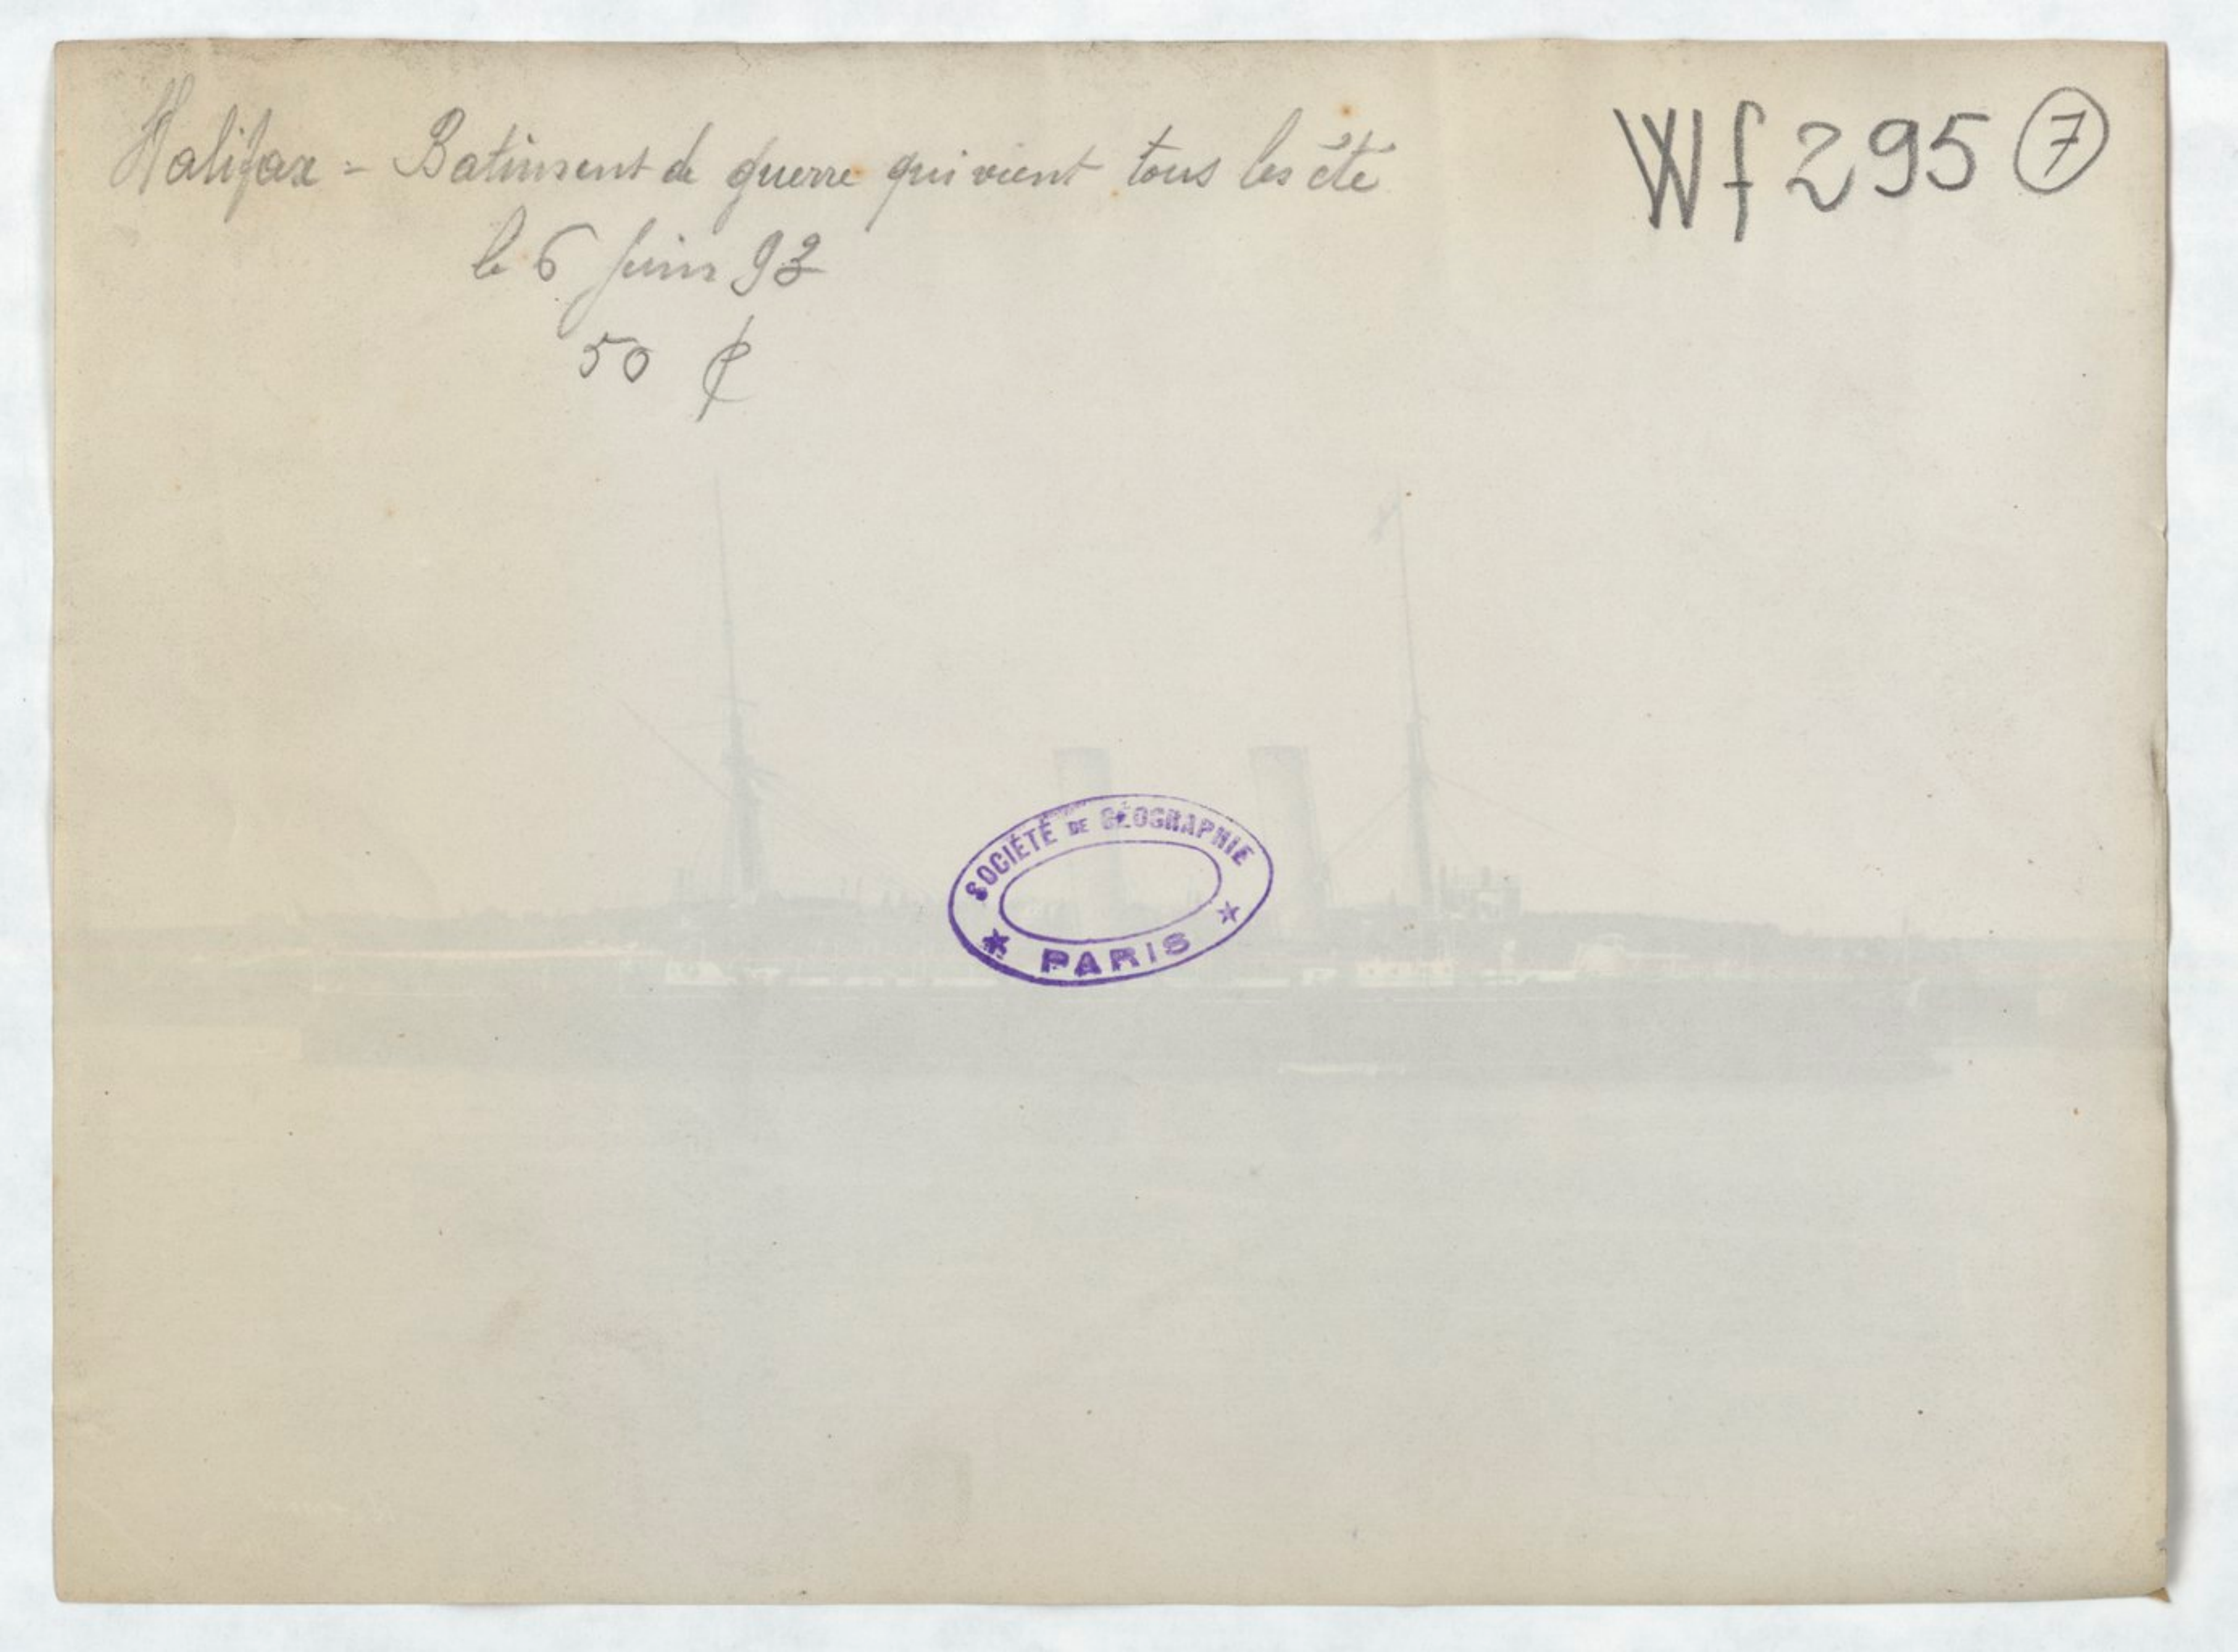 Halifax = Batiment de guerre qui vient tous les été
Wf 295 7
le 6 juin 93
50 ¢
SOCIÉTÉ DE GÉOGRAPHIE
★ PARIS ★